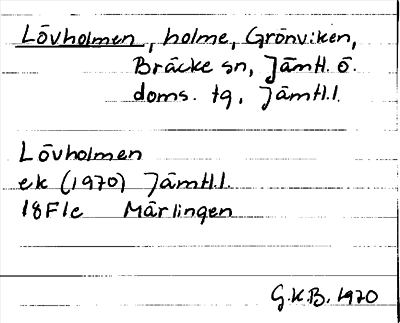 Lövholmen, holme, Grönviken,
Bräcke sn, Jämtl. ö.
doms. tg, Jämtl.l.
Lövholmen
ek (1970) Jämtl.l.
18F1c Märlingen
G.K.B. 1970